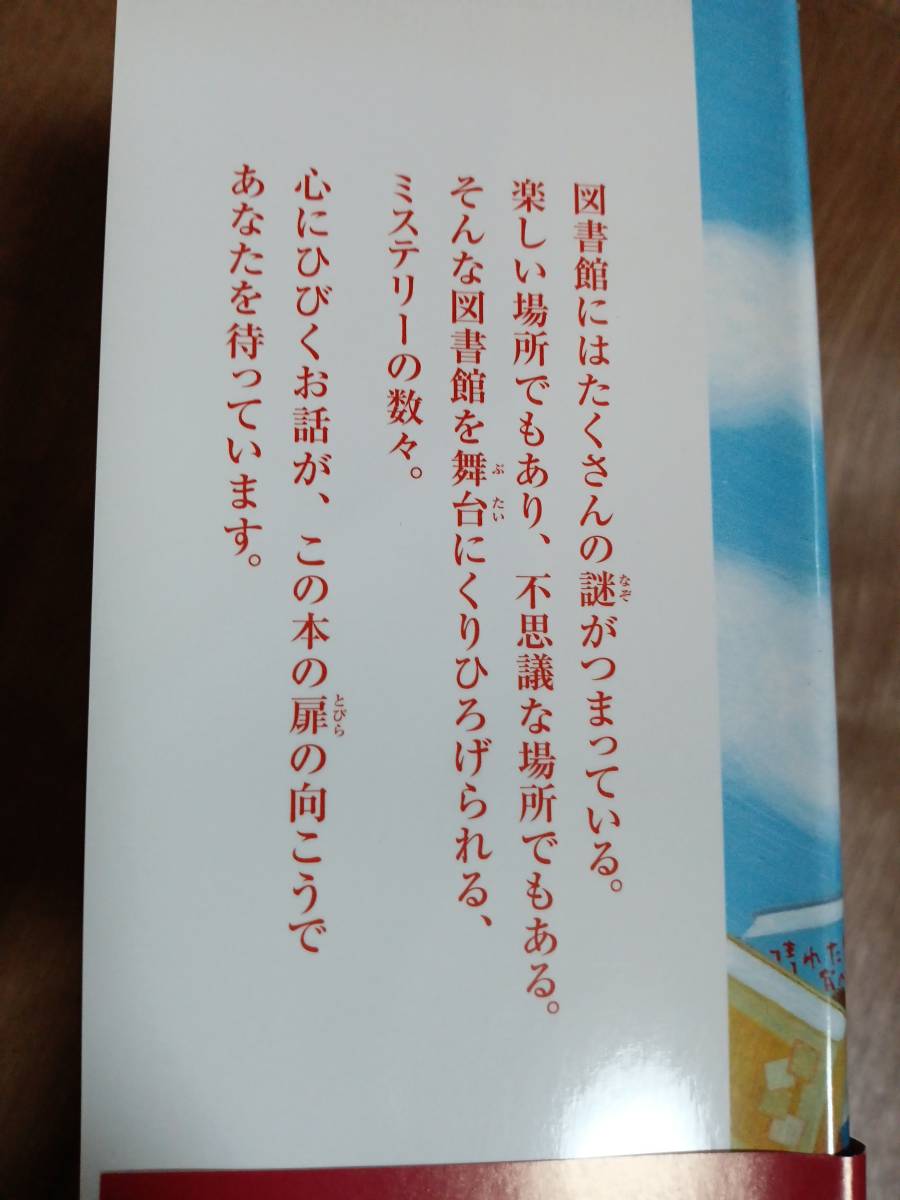 図書館にはたくさんの謎がつまっている。
楽しい場所でもあり、不思議な場所でもある。
そんな図書館を舞台にくりひろげられる、
ミステリーの数々。
心にひびくお話が、この本の扉の向こうで
あなたを待っています。